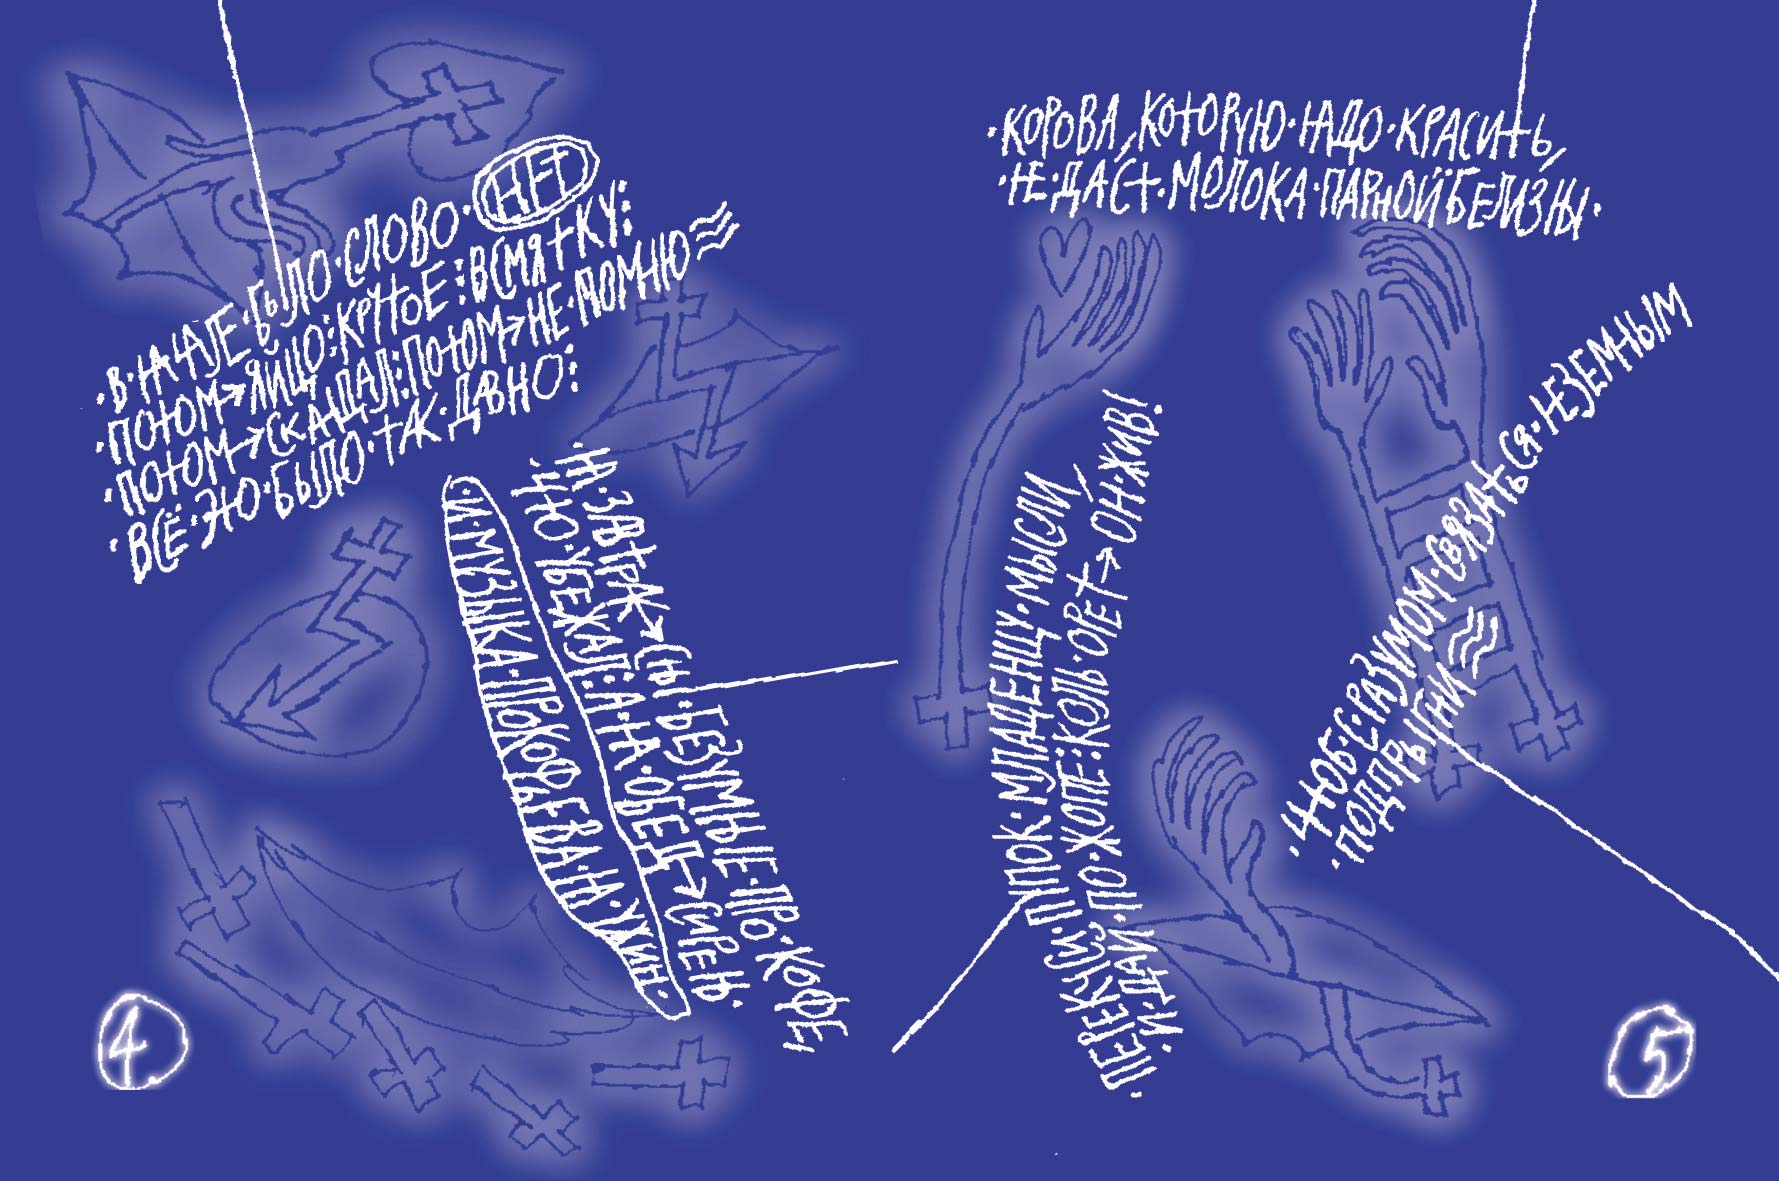 ·В·НАЧАЛЕ·БЫЛО·СЛОВО·НЕТ
·ПОТОМ→ЯЙЦО:КРУТОЕ:ВСМЯТКУ:
·ПОТОМ→СКАЩАЛ:ПОТОМ→НЕ·ПОМНЮ
·ВСЁ·ЭТО·БЫЛО·ТАК·ДАВНО:
·НА·ЗАВТРАК→СНЫ·БЕЗУМНЫЕ·ПРО·КОФЕ,
·ЧТО·УБЕЖАЛ:А·НА·ОБЕД→СИРЕНЬ·
·И·МУЗЫКА·ПРОКОФЬЕВА·НА·УЖИН·
4
·КОРОВА,КОТОРУЮ·НАДО·КРАСИТЬ,
·НЕ·ДАСТ·МОЛОКА·ПАРНОЙ·БЕЛИЗНЫ·
·ПЕРЕКУСИ·ПУПОК·МЛАДЕНЦУ·МЫСЛИ
·И·ДАЙ·ПО·ЖОПЕ:КОЛЬ·ОРЕТ→ОН·ЖИВ!
·ЧТОБ·С·РАЗУМОМ·СВЯЗАТЬСЯ·НЕЗЕМНЫМ
·ПОДПРЫГНИ
5